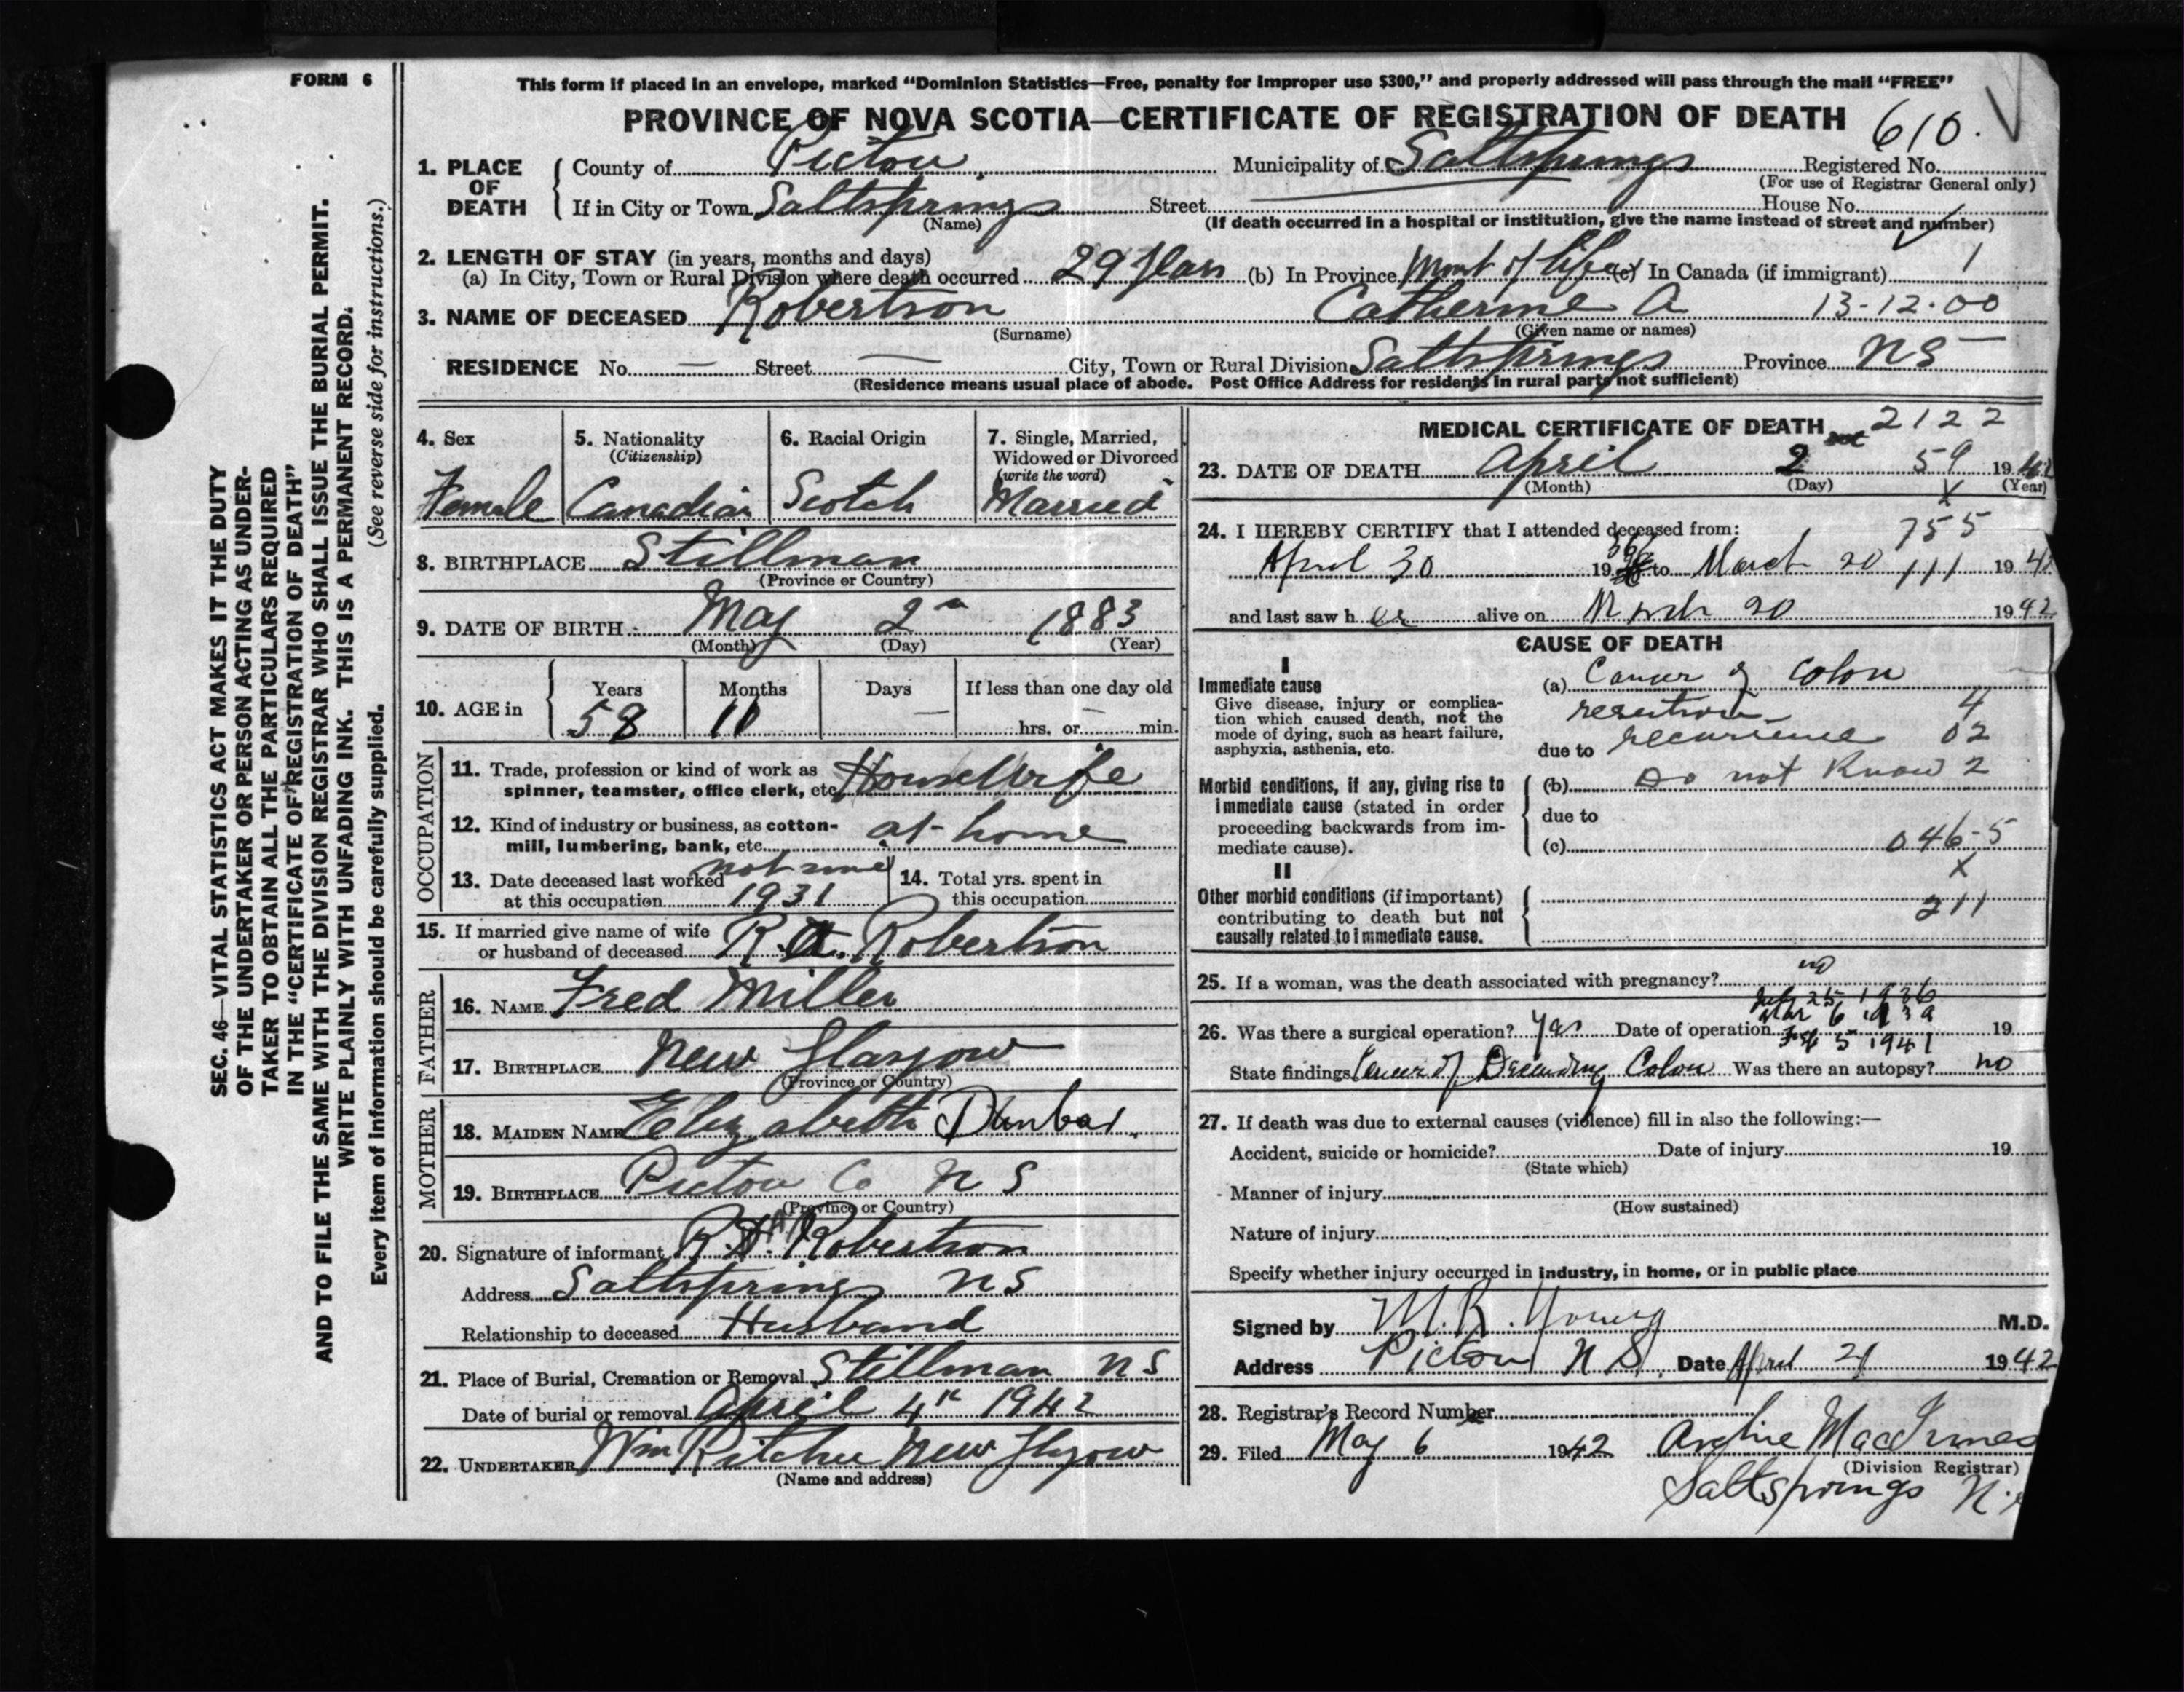 FORM 6
This form if placed in an envelope, marked “Dominion Statistics—Free, penalty for improper use $300,” and properly addressed will pass through the mail “FREE”
PROVINCE OF NOVA SCOTIA—CERTIFICATE OF REGISTRATION OF DEATH 610.
1. PLACE OF DEATH
County of Pictou Municipality of Saltsprings Registered No.
(For use of Registrar General only)
If in City or Town Saltsprings Street House No.
(Name) (If death occurred in a hospital or institution, give the name instead of street and number)
2. LENGTH OF STAY (in years, months and days)
(a) In City, Town or Rural Division where death occurred 29 Years (b) In Province Most of life (c) In Canada (if immigrant) 1
3. NAME OF DECEASED Robertson Catherine A 13-12-00
(Surname) (Given name or names)
RESIDENCE No. — Street — City, Town or Rural Division Saltsprings Province NS
(Residence means usual place of abode. Post Office Address for residents in rural parts not sufficient)
4. Sex
Female
5. Nationality
(Citizenship)
Canadian
6. Racial Origin
Scotch
7. Single, Married,
Widowed or Divorced
(write the word)
Married
8. BIRTHPLACE Stillman
(Province or Country)
9. DATE OF BIRTH May 2 1883
(Month) (Day) (Year)
10. AGE in
Years Months Days If less than one day old
58 11 — hrs. or — min.
OCCUPATION
11. Trade, profession or kind of work as
spinner, teamster, office clerk, etc. Housewife
12. Kind of industry or business, as cotton-
mill, lumbering, bank, etc. at home
13. Date deceased last worked not since
at this occupation 1931
14. Total yrs. spent in
this occupation
15. If married give name of wife
or husband of deceased R. A. Robertson
FATHER
16. NAME Fred Miller
17. BIRTHPLACE New Glasgow
(Province or Country)
MOTHER
18. MAIDEN NAME Elizabeth Dunbar.
19. BIRTHPLACE Pictou Co N S
(Province or Country)
20. Signature of informant R. A. Robertson
Address Saltsprings NS
Relationship to deceased Husband
21. Place of Burial, Cremation or Removal Stillman NS
Date of burial or removal April 4th 1942
22. UNDERTAKER Wm Ritchie New Glasgow
(Name and address)
MEDICAL CERTIFICATE OF DEATH 2122
23. DATE OF DEATH April 2 59 1942
(Month) (Day) (Year)
X
24. I HEREBY CERTIFY that I attended deceased from: 755
April 30 1936 to March 20 111 1942
and last saw her alive on March 20 1942
CAUSE OF DEATH
I
Immediate cause
Give disease, injury or complica-
tion which caused death, not the
mode of dying, such as heart failure,
asphyxia, asthenia, etc.
(a) Cancer of Colon
resection 4
due to recurrence 02
Morbid conditions, if any, giving rise to
immediate cause (stated in order
proceeding backwards from im-
mediate cause).
(b) Do not Know 2
due to
(c) 046-5
X
II
Other morbid conditions (if important)
contributing to death but not
causally related to immediate cause.
211
25. If a woman, was the death associated with pregnancy? no
26. Was there a surgical operation? Yes Date of operation 25 1936
Mar 6 1939 19
5 1941
State findings Cancer of Descending Colon Was there an autopsy? no
27. If death was due to external causes (violence) fill in also the following:—
Accident, suicide or homicide? Date of injury 19
(State which)
Manner of injury
(How sustained)
Nature of injury
Specify whether injury occurred in industry, in home, or in public place
Signed by M. R. Young M.D.
Address Pictou N S. Date April 21 1942
28. Registrar's Record Number
29. Filed May 6 1942 Archie MacInnes
(Division Registrar)
Saltsprings N.S
SEC. 46—VITAL STATISTICS ACT MAKES IT THE DUTY
OF THE UNDERTAKER OR PERSON ACTING AS UNDER-
TAKER TO OBTAIN ALL THE PARTICULARS REQUIRED
IN THE “CERTIFICATE OF REGISTRATION OF DEATH”
AND TO FILE THE SAME WITH THE DIVISION REGISTRAR WHO SHALL ISSUE THE BURIAL PERMIT.
WRITE PLAINLY WITH UNFADING INK. THIS IS A PERMANENT RECORD.
Every item of information should be carefully supplied. (See reverse side for instructions.)